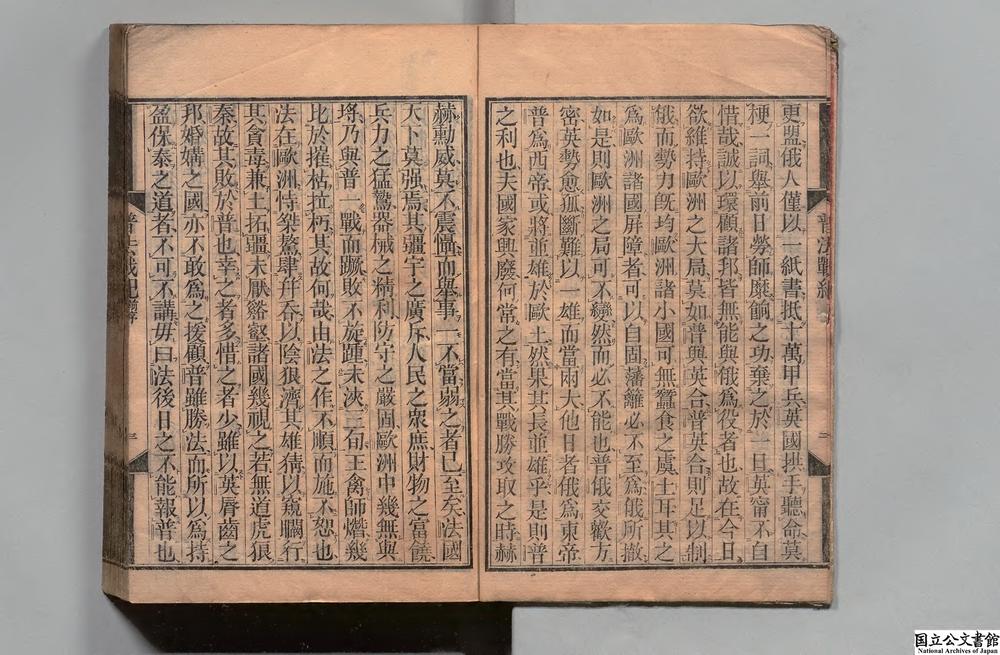 更盟俄人僅以一紙書抵十萬甲兵英國拱手聽命莫
梗一詞舉前日勞師糜餉之功棄之於一旦英甯不自
惜哉誠以環顧諸邦皆無能與俄爲役者也故在今日
欲維持歐洲之大局莫如普與英合普英合則足以制
俄而勢力旣均歐洲諸小國可無蠶食之虞土耳其之
爲歐洲諸國屏障者可以自固藩籬必不至爲俄所撤
如是則歐洲之局可不變然而必不能也普俄交歡方
密英勢愈孤斷難以一雄而當兩大他日者俄爲東帝
普爲西帝或將並雄於歐土然果其長並雄乎是則普
之利也夫國家興廢何常之有當其戰勝攻取之時赫
普法戰紀
赫勳威莫不震懾而舉事一不當弱之者已至矣法國
天下莫强焉其疆宇之廣斥人民之衆庶財物之富饒
兵力之猛鷙器械之精利防守之嚴固歐洲中幾無與
埓乃與普一戰而蹶敗不旋踵未浹三旬王禽師熸幾
比於摧枯拉朽其故何哉由法之作不順而施不恕也
法在歐洲恃桀驁肆幷吞以陰狠濟其雄猜以窺矙行
其貪毒兼土拓疆未厭谿壑諸國幾視之若無道虎狼
秦故其敗於普也幸之者多惜之者少雖以英脣齒之
邦婚媾之國亦不敢爲之援顧普雖勝法而所以爲持
盈保泰之道者不可不講毋曰法後日之不能報普也
普法戰紀
三
国立公文書館
National Archives of Japan